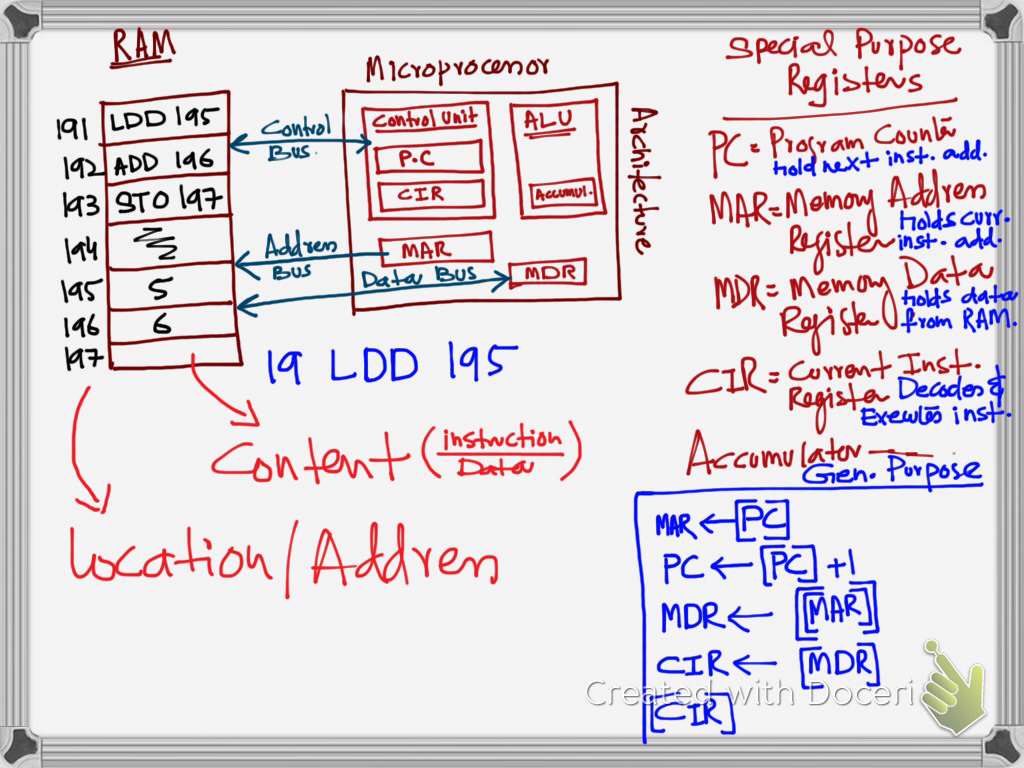 RAM
191 LDD 195
192 ADD 196
193 STO 197
194
195 5
196 6
197
Control
Bus.
Address
Bus
Data Bus
Microprocessor
Control Unit
P.C
CIR
ALU
Accumul.
MAR
MDR
Architecture
19 LDD 195
Content (instruction/Data)
Location/Address
Special Purpose
Registers
PC = Program Counter
Hold next inst. add.
MAR = Memory Address
Register Holds curr.
inst. add.
MDR = Memory Data
Register holds data
from RAM.
CIR = Current Inst.
Register Decodes &
Executes inst.
Accumulator
Gen. Purpose
MAR ← [PC]
PC ← [PC] +1
MDR ← [[MAR]]
CIR ← [MDR]
[CIR]
Created with Doceri